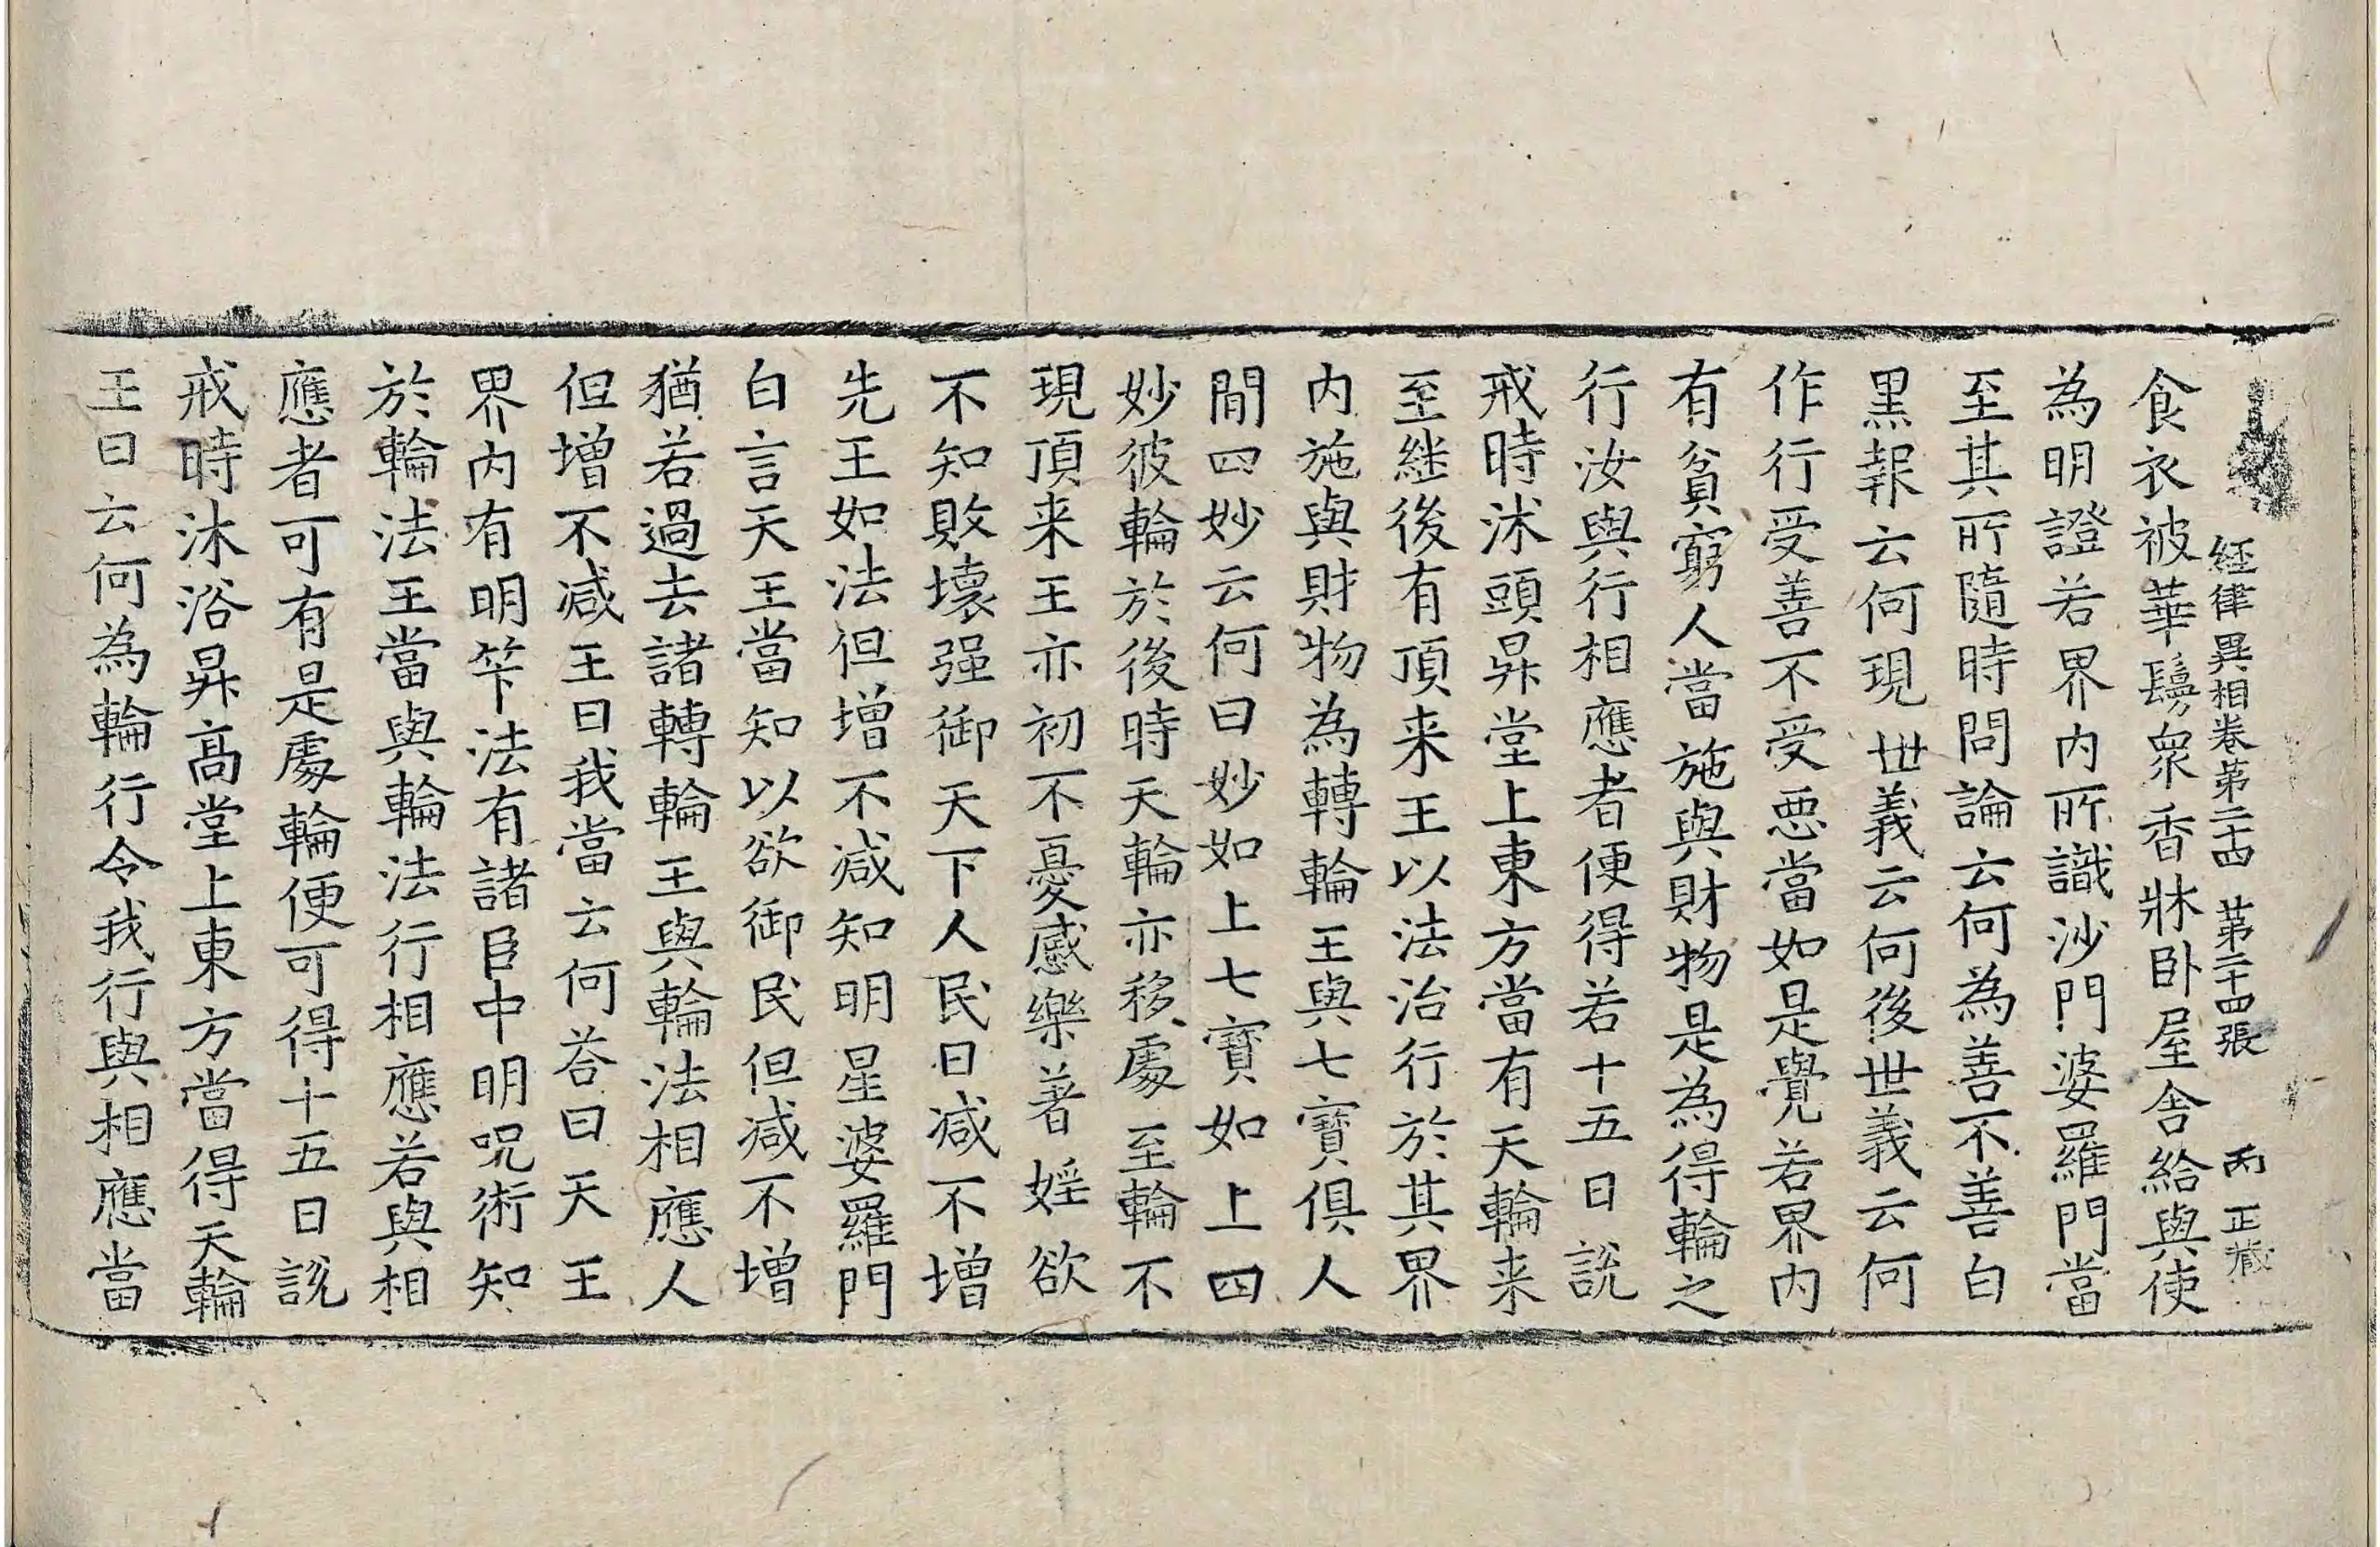 經律異相卷第二十四 第二十四張 丙 正藏
食衣被華鬘衆香牀卧屋舍給與使
為明證若界內所識沙門婆羅門當
至其所隨時問論云何為善不善白
黑報云何現世義云何後世義云何
作行受善不受惡當如是覺若界內
有貧窮人當施與財物是為得輪之
行汝與行相應者便得若十五日説
戒時沐頭昇堂上東方當有天輪来
至継後有頂来王以法治行於其界
內施與財物為轉輪王與七寶俱人
間四妙云何曰妙如上七寶如上四
妙彼輪於後時天輪亦移處至輪不
現頂来王亦初不憂慼樂著婬欲
不知敗壞强御天下人民日減不增
先王如法但增不減知明星婆羅門
白言天王當知以欲御民但減不增
猶若過去諸轉輪王與輪法相應人
但增不減王曰我當云何荅曰天王
界內有明笇法有諸臣中明呪術知
於輪法王當與輪法行相應若與相
應者可有是處輪便可得十五日説
戒時沐浴昇高堂上東方當得天輪
王曰云何為輪行令我行與相應當